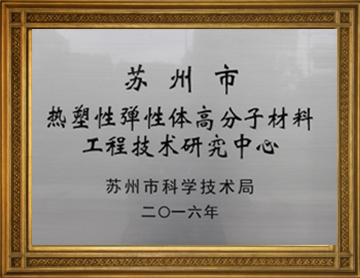 苏州市
热塑性弹性体高分子材料
工程技术研究中心
苏州市科学技术局
二〇一六年